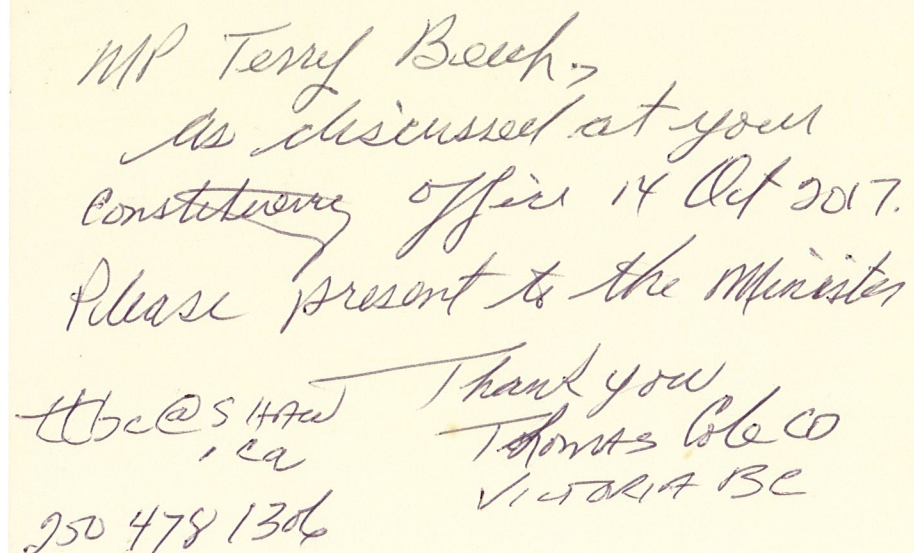 MP Terry Beech,
As discussed at your
constituency office 14 Oct 2017.
Please present to the Minister
Thank you
Thomas Cole CD
VICTORIA BC
ttbc@SHAW
.ca
250 478 1306